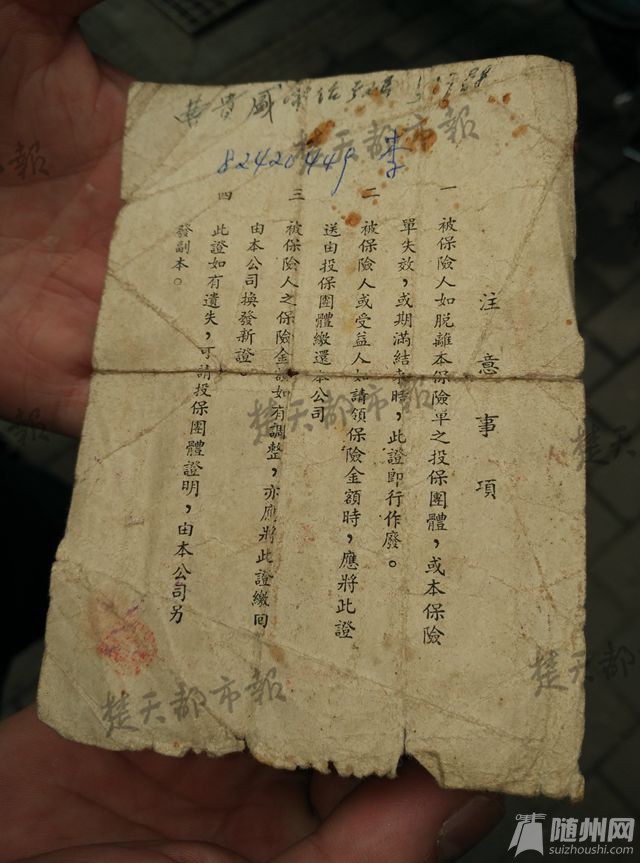 82420449 李
注意事項
一 被保險人如脱離本保險單之投保團體，或本保險
單失效，或期滿結束時，此證即行作廢。
二 被保險人或受益人如請領保險金額時，應將此證
送由投保團體繳還本公司
三 被保險人之保險金額如有調整，亦應將此證繳回
由本公司換發新證。
四 此證如有遺失，可請投保團體證明，由本公司另
發副本。
楚天都市報
楚天都市報
楚天都市報
楚天都市報
楚天都
報
報
随州网
suizhoushi.com